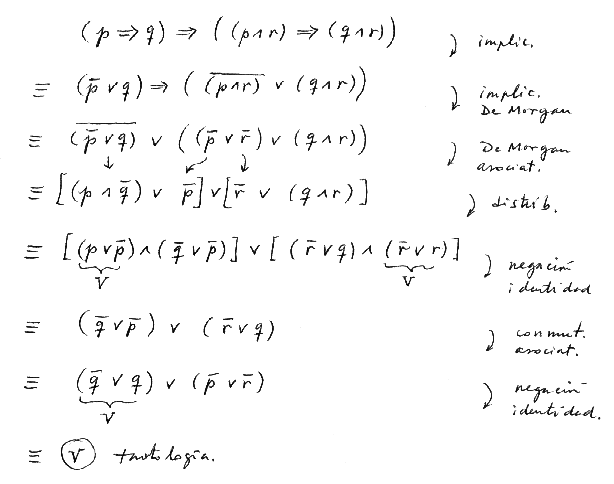 (p ⇒ q) ⇒ ((p ∧ r) ⇒ (q ∧ r)) implic.
≡ (p̄ ∨ q) ⇒ ( \overline{(p ∧ r)} ∨ (q ∧ r)) implic. De Morgan
≡ \overline{(p̄ ∨ q)} ∨ ((p̄ ∨ r̄) ∨ (q ∧ r)) De Morgan asociat.
≡ [(p ∧ q̄) ∨ p̄] ∨ [r̄ ∨ (q ∧ r)] distrib.
≡ [(p ∨ p̄) ∧ (q̄ ∨ p̄)] ∨ [(r̄ ∨ q) ∧ (r̄ ∨ r)] negación identidad
V V
≡ (q̄ ∨ p̄) ∨ (r̄ ∨ q) conmut. asociat.
≡ (q̄ ∨ q) ∨ (p̄ ∨ r̄) negación identidad.
V
≡ V tautología.